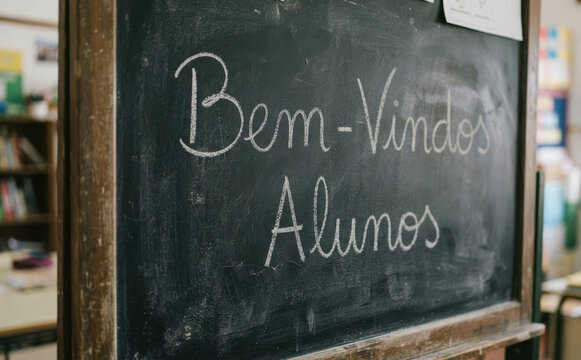 Bem-Vindos
Alunos